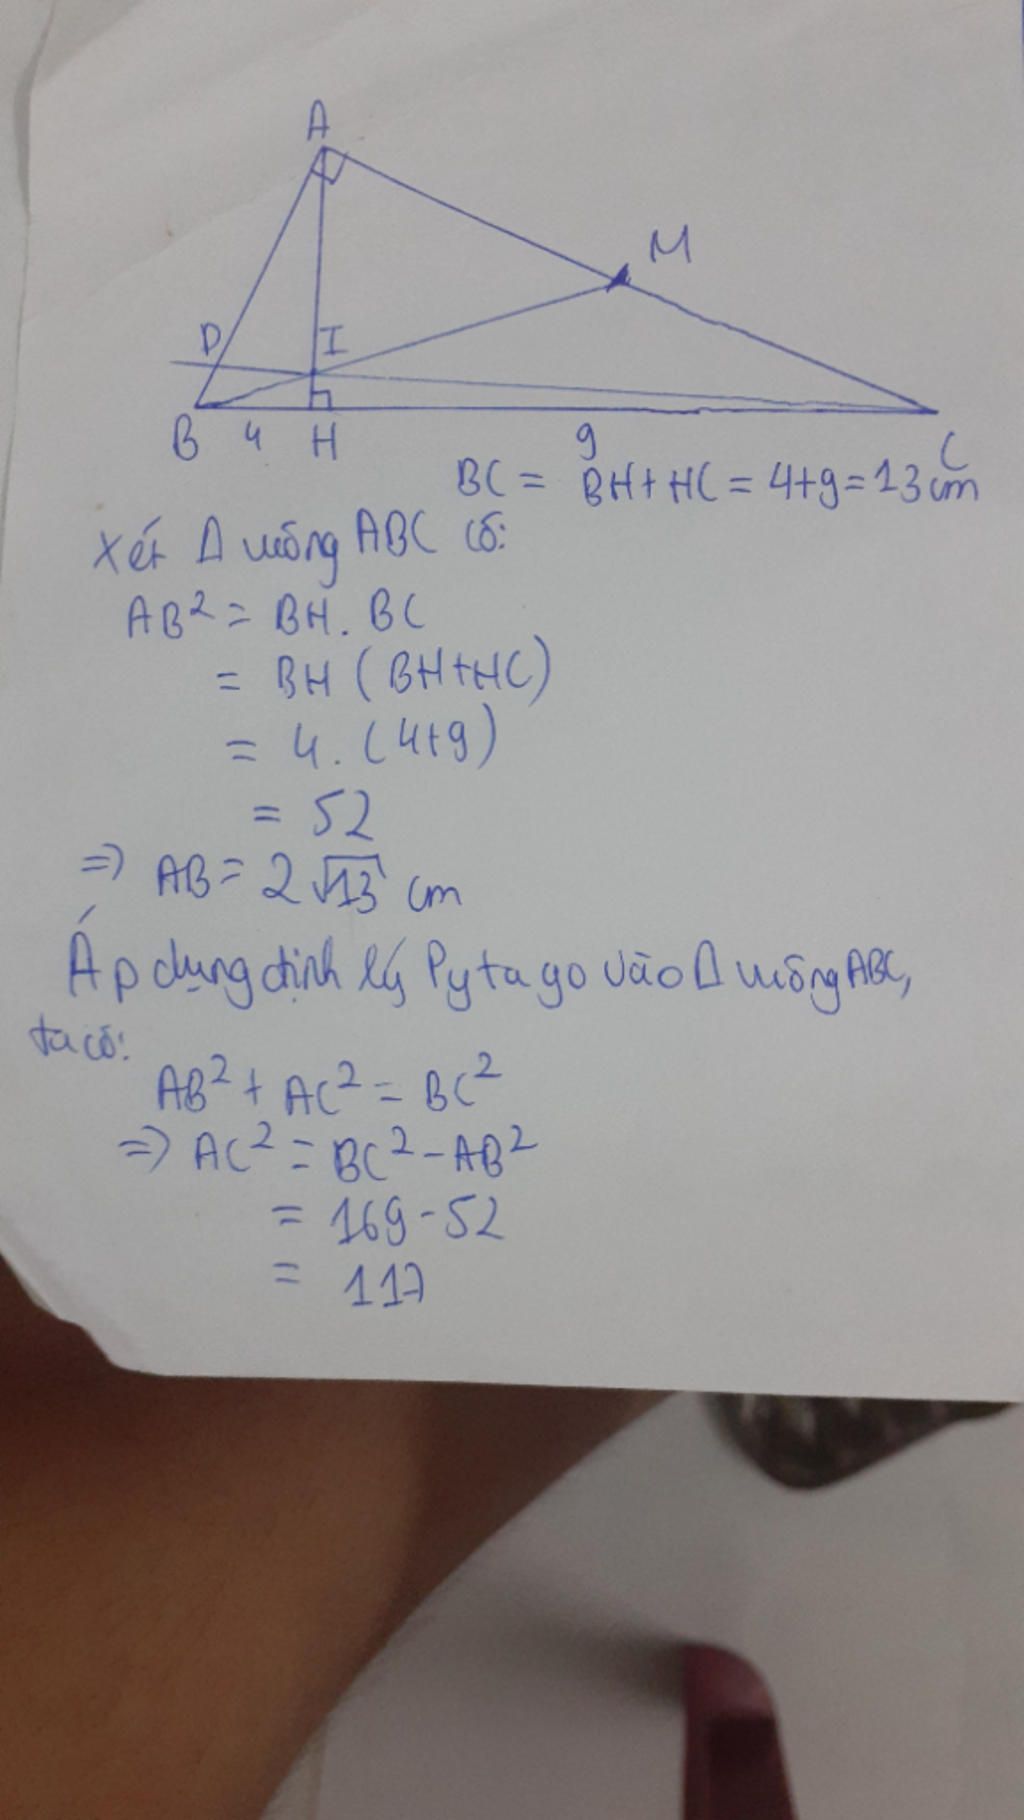 A
M
D
I
B 4 H 9 C
BC = BH + HC = 4+9 = 13 cm
Xét Δ vuông ABC có:
AB² = BH . BC
= BH (BH+HC)
= 4 . (4+9)
= 52
=> AB = 2√13 cm
Áp dụng định lý Pytago vào Δ vuông ABC,
ta có:
AB² + AC² = BC²
=> AC² = BC² - AB²
= 169 - 52
= 117